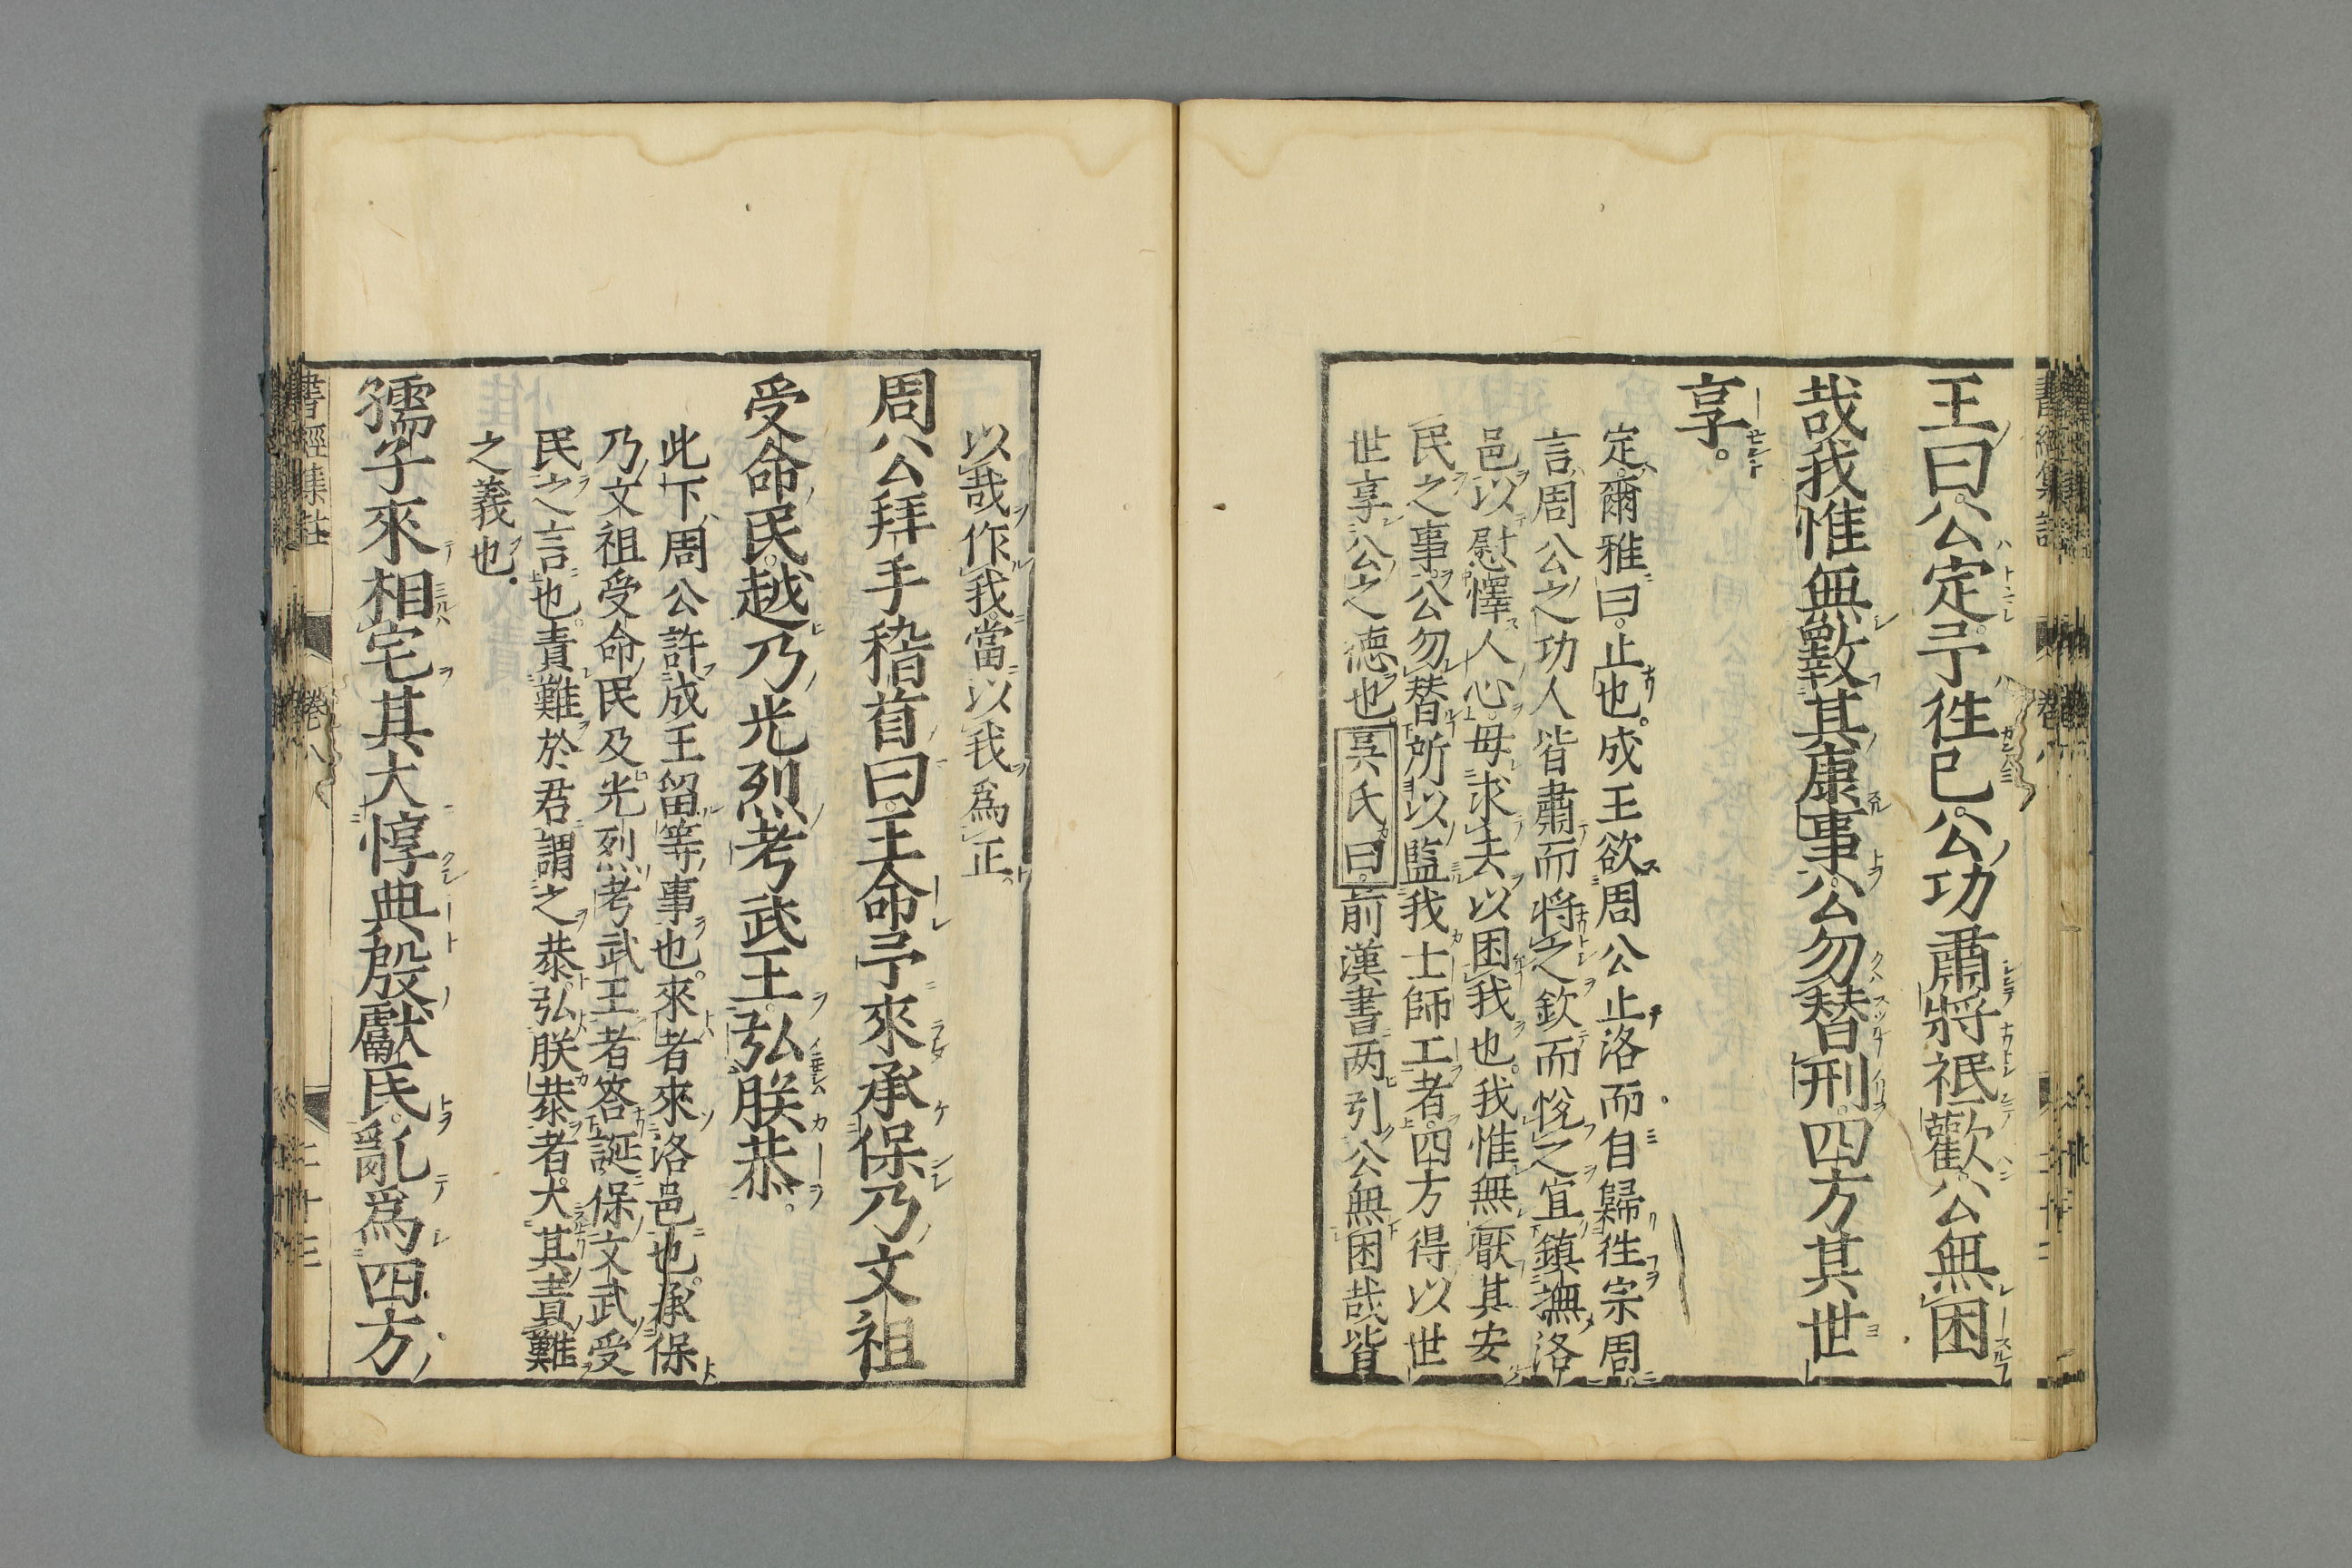 王曰公定予徃已公功肅將祗歡公無困
哉我惟無斁其康事公勿替刑四方其世
享。
定爾雅曰。止也。成王欲周公止洛而自歸徃宗周
言周公之功人皆肅而將之欽而悅之宜鎮撫洛
邑以慰懌人心。毋求去以困我也。我惟無厭其安
民之事。公勿替所以監我士師工者。四方得以世
世享公之德也吳氏曰。前漢書两引公無困哉皆
以哉作我。當以我爲正。
周公拜手稽首曰。王命予來承保乃文祖
受命民。越乃光烈考武王。弘朕恭。
此下周公許成王留等事也。來者來洛邑也。承保
乃文祖受命民及光烈考武王者答誕保文武受
民之言也。責難於君謂之恭。弘朕恭者大其責難
之義也。
孺子來相宅其大惇典殷獻民。亂爲四方
書經集註 卷八 二十三